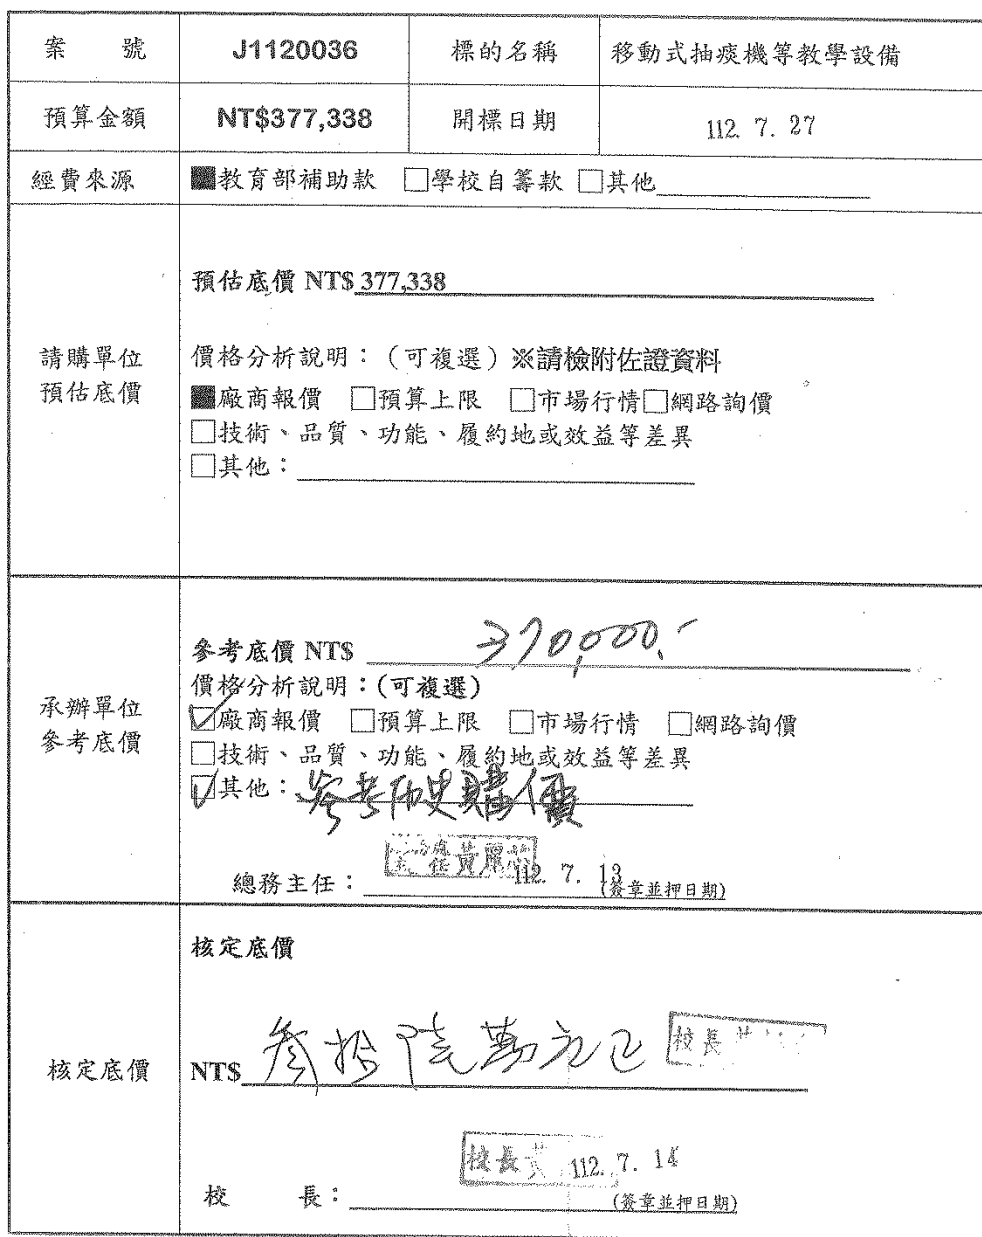 案 號 J1120036 標的名稱 移動式抽痰機等教學設備
預算金額 NT$377,338 開標日期 112. 7. 27
經費來源 ■教育部補助款 □學校自籌款 □其他
預估底價 NT$ 377,338
請購單位
預估底價
價格分析說明：（可複選）※請檢附佐證資料
■廠商報價 □預算上限 □市場行情□網路詢價
□技術、品質、功能、履約地或效益等差異
□其他：
承辦單位
參考底價
參考底價 NT$ 370,000.-
價格分析說明：(可複選)
☑廠商報價 □預算上限 □市場行情 □網路詢價
□技術、品質、功能、履約地或效益等差異
☑其他：參考历史購價
主任黃麗
總務主任： 112. 7. 13 (簽章並押日期)
核定底價
核定底價
NT$ 參拾陸萬元正 校長
校長黃 112. 7. 14
校 長： (簽章並押日期)